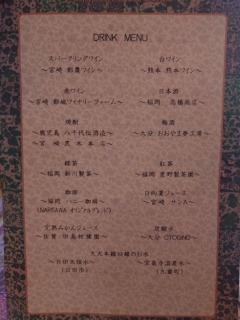 DRINK MENU
スパークリングワイン
～宮崎 都農ワイン～
白ワイン
～熊本 熊本ワイン～
赤ワイン
～宮崎 都城ワイナリーファーム～
日本酒
～福岡 高橋商店～
焼酎
～鹿児島 八千代伝酒造～
～宮崎 黒木本店～
梅酒
～大分 おおやま夢工房～
緑茶
～福岡 新川製茶～
紅茶
～福岡 星野製茶園～
珈琲
～福岡 ハニー珈琲～
(NARIAWA オリジナルブレンド)
日向夏ジュース
～宮崎 サンA～
完熟みかんジュース
～佐賀 田島柑橘園～
炭酸水
～大分 OTOGINO～
久大本線沿線のお水
～日田天領水～
(日田市)
～宝泉寺温泉水～
(九重町)